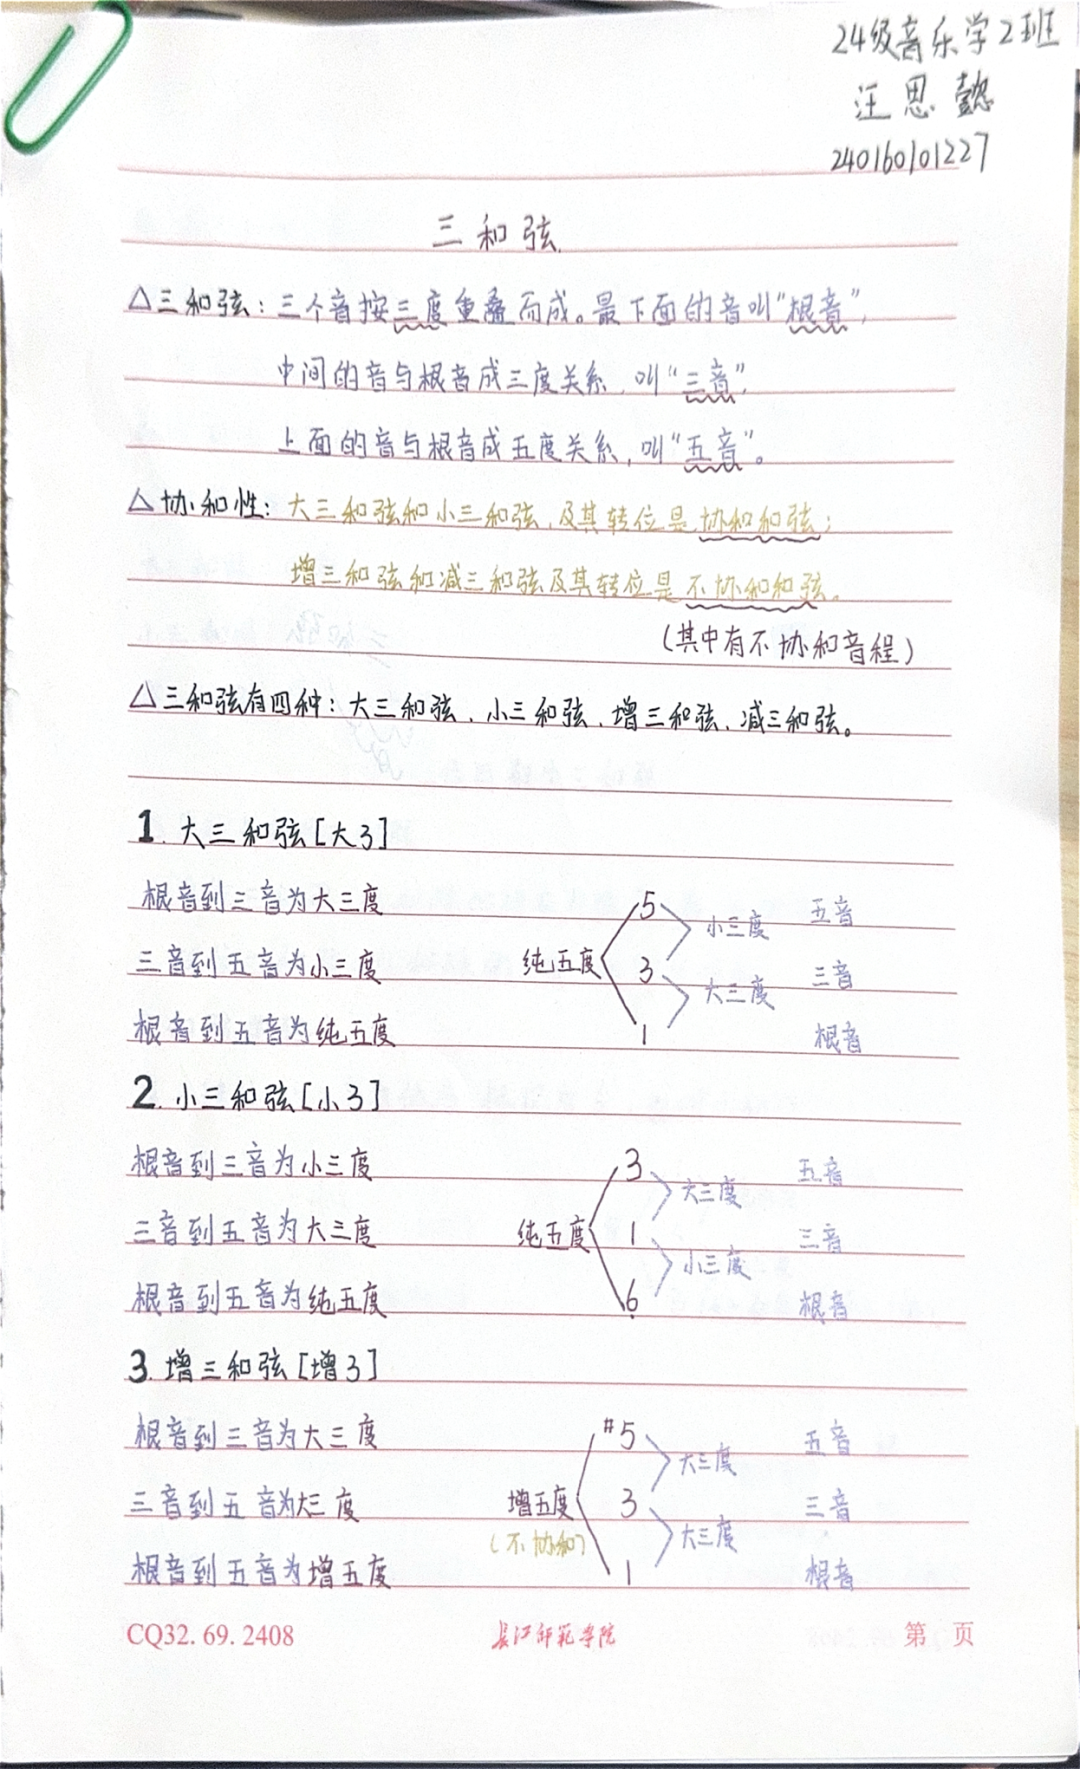 24级音乐学2班
汪思懿
240160101227
三和弦
△三和弦：三个音按三度重叠而成。最下面的音叫“根音”，
中间的音与根音成三度关系，叫“三音”，
上面的音与根音成五度关系，叫“五音”。
△协和性：大三和弦和小三和弦，及其转位是协和和弦；
增三和弦和减三和弦及其转位是不协和和弦。
（其中有不协和音程）
△三和弦有四种：大三和弦、小三和弦、增三和弦、减三和弦。
1. 大三和弦[大3]
根音到三音为大三度
5 小三度 五音
三音到五音为小三度 纯五度 3 三音
大三度
根音到五音为纯五度 1 根音
2. 小三和弦[小3]
根音到三音为小三度 3 五音
大三度
三音到五音为大三度 纯五度 1 三音
小三度
根音到五音为纯五度 6̣ 根音
3. 增三和弦[增3]
根音到三音为大三度 #5 五音
大三度
三音到五音为大三度 增五度 3 三音
（不协和） 大三度
根音到五音为增五度 1 根音
CQ32.69.2408 长江师范学院 第 页